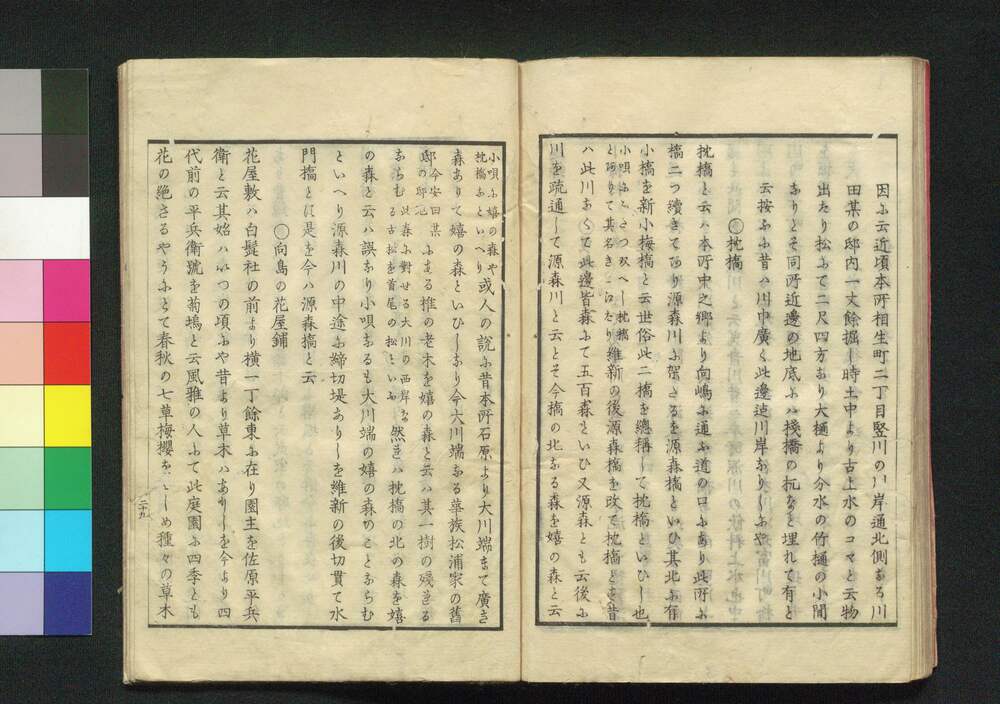 因ふ云近頃本所相生町二丁目竪川の川岸通北側なる川
田某の邸内一丈餘掘し時土中より古上水のコマと云物
出たり松ふて二尺四方なり大樋より分水の竹樋の小間
ありとそ同所近邊の地底ふハ棧橋の杭なと埋れて有と
云按ふふ昔ハ川中廣く此邊迠川岸なりしふや
○枕橋
枕橋と云ハ本所中之郷より向嶋ふ通ふ道の口ふあり此所ふ
橋二つ續きてあり源森川ふ架たるを源森橋といひ其北ふ有
小橋を新小梅橋と云世俗此二橋を總稱して枕橋といひし也
小唄ふ
とありて其名き
維新の後源森橋を改て枕橋とを昔
ハ此川なくて此邊皆森ふて五百森といひ又源森とも云後ふ
川を疏通して源森川と云とそ今橋の北なる森を嬉の森と云
小唄ふ嬉の森や
枕橋なといへり
或人の説ふ昔本所石原より大川端まて廣き
森ありて嬉の森といひしなり今大川端なる華族松浦家の舊
邸
今安田某
の邸
ふある椎の老木を嬉の森と云ハ其一樹の殘れる
ならむ
此森ふ對せる大川の西岸な
る古松を首尾の松といふ
然れハ枕橋の北の森を嬉
の森と云ハ誤なり小唄なるも大川端の嬉の森のことならむ
といへり源森川の中途ふ締切堤ありしを維新の後切貫て水
門橋とは是を今ハ源森橋と云
○向島の花屋鋪
花屋敷ハ白髭社の前より横一丁餘東ふ在り園主を佐原平兵
衛と云其始ハいつの頃ふや昔より草木ハありしを今より四
代前の平兵衛號を菊塢と云風雅の人ふて此庭園ふ四季とも
花の絶さるやうふとて春秋の七草梅櫻をはしめ種々の草木
二十九